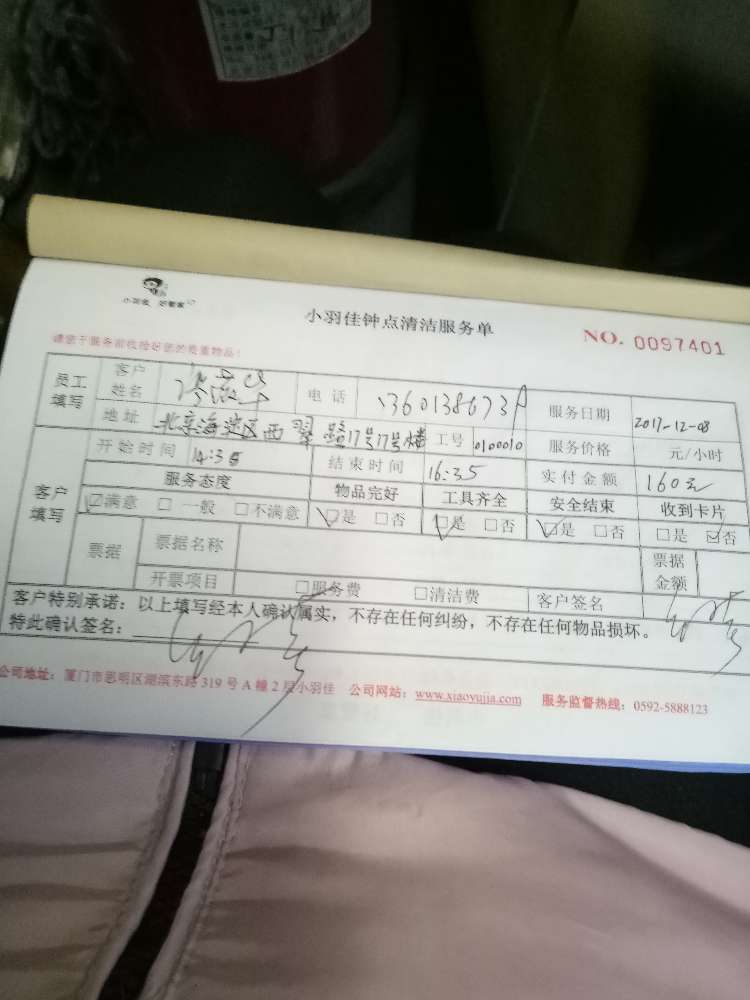 小羽佳 好管家
小羽佳钟点清洁服务单
NO. 0097401
请您于服务前收捡好您的贵重物品!
员工填写 客户姓名 电话 服务日期 2017-12-08
地址 北京海淀区西翠路17号17号楼 工号 0100010 服务价格 元/小时
客户填写 开始时间 14:35 结束时间 16:35 实付金额 160元
服务态度 物品完好 工具齐全 安全结束 收到卡片
☑满意 □一般 □不满意 ☑是 □否 ☑是 □否 ☑是 □否 □是 ☑否
票据 票据名称 票据金额
开票项目 □服务费 □清洁费 客户签名
客户特别承诺:以上填写经本人确认属实,不存在任何纠纷,不存在任何物品损坏。
特此确认签名:
公司地址:厦门市思明区湖滨东路319号A幢2层小羽佳 公司网站:www.xiaoyujia.com 服务监督热线:0592-5888123